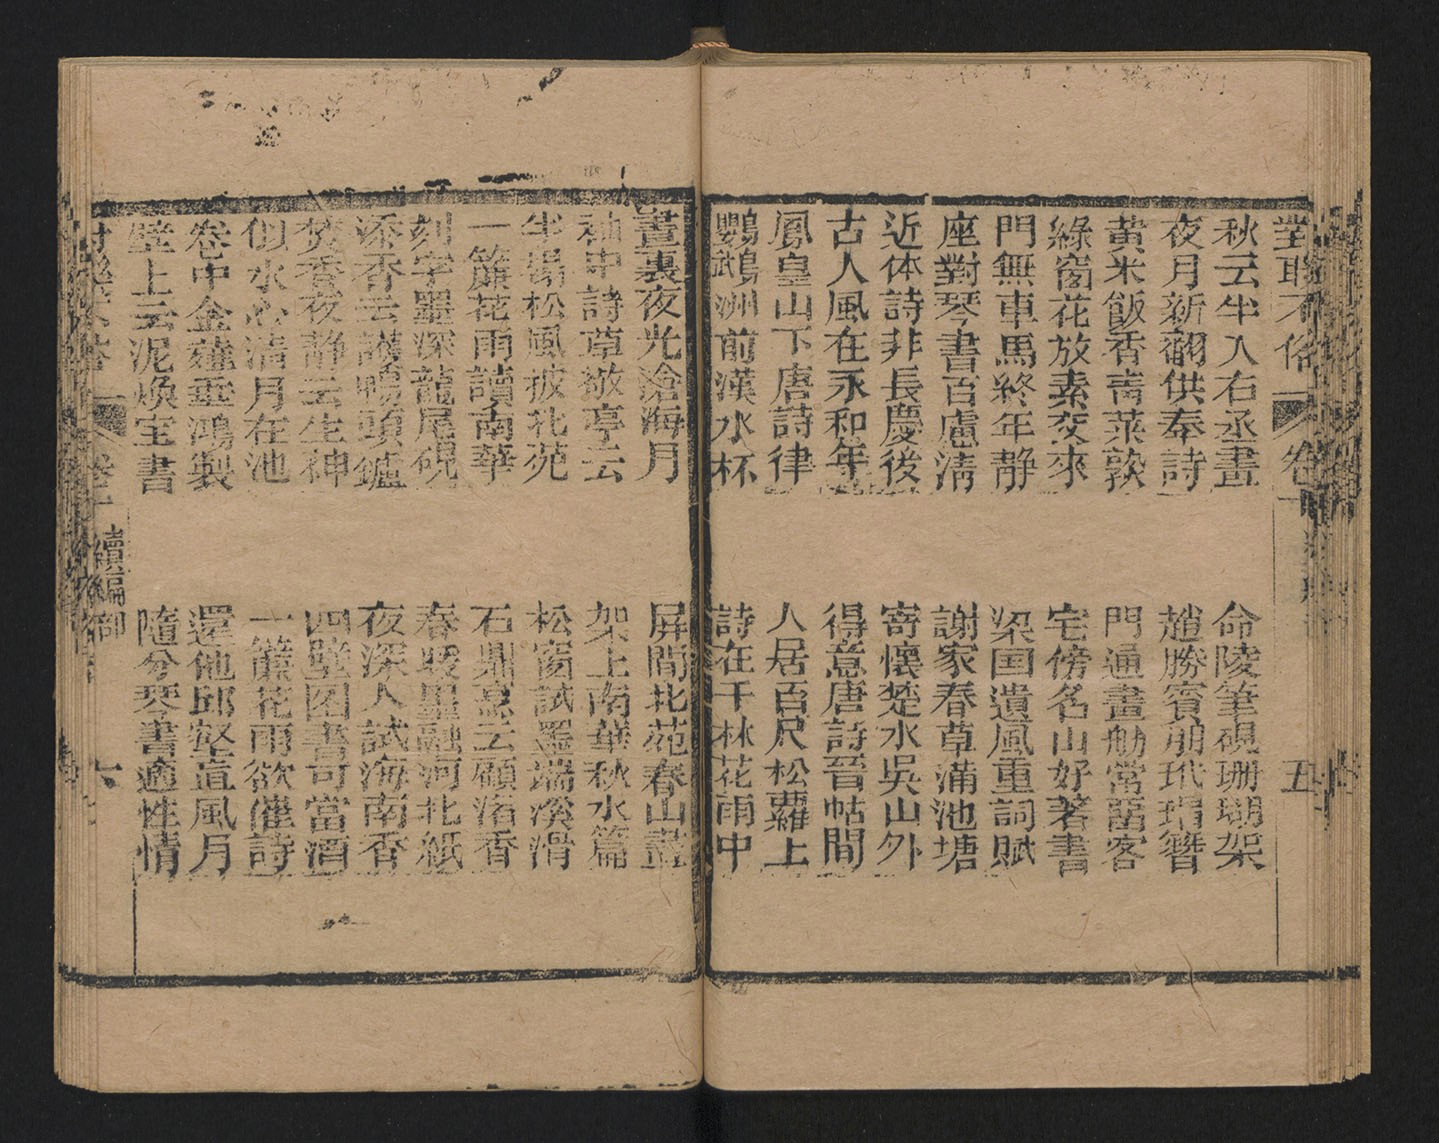 對聯不俗 卷一 五
秋云半入右丞畫
命陵筆硯珊瑚架
夜月新翻供奉詩
趙勝賓朋玳瑁簪
黃米飯香靑菜熟
門通畫舫常留客
綠窗花放素交來
宅傍名山好著書
門無車馬終年静
梁国遺風重詞賦
座對琴書百慮淸
謝家春草滿池塘
近体詩非長慶後
寄懷楚水吳山外
古人風在永和年
得意唐詩晉帖間
鳳皇山下唐詩律
人居百尺松蘿上
鸚鵡洲前漢水杯
詩在千林花雨中
畫裏夜光滄海月
屏間北苑春山畫
袖中詩草敬亭云
架上南華秋水篇
半榻松風披北苑
松窗試墨端溪滑
一簾花雨讀南華
石鼎烹云顧渚香
刻字墨深龍尾硯
春暖墨融河北紙
添香云護鴨頭鑪
夜深人試海南香
焚香夜静云生神
四壁图書可當酒
似水心清月在池
一簾花雨欲催詩
卷中金薤垂鴻製
還他邱壑盲風月
壁上云泥煥宝書
隨分琴書適性情
卷一 續編 御 六